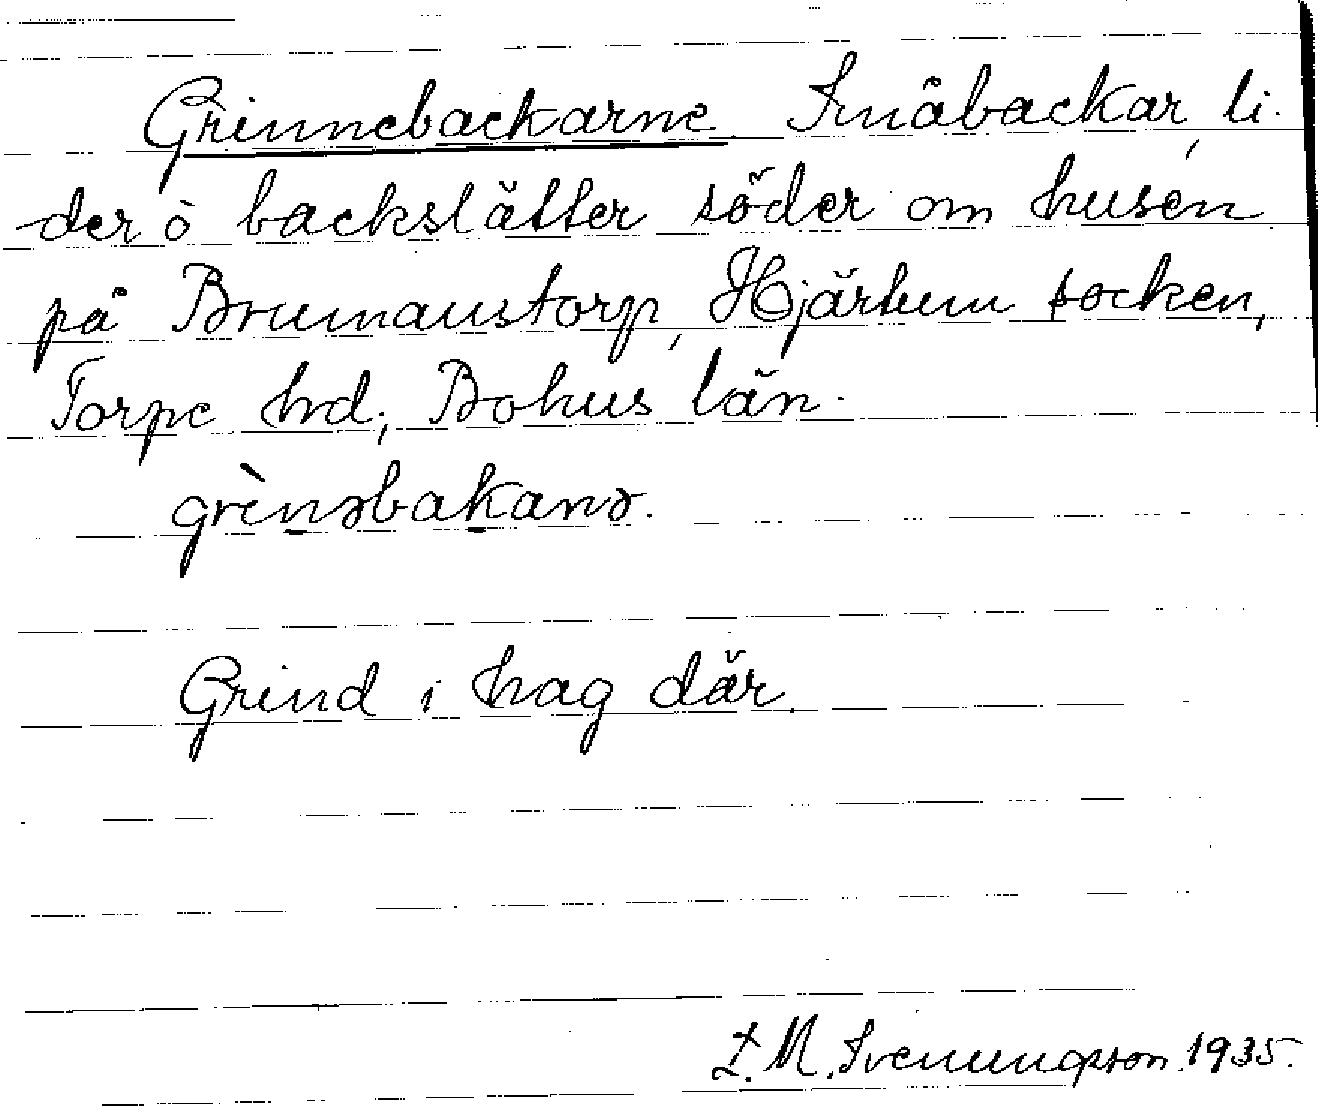 Grinnebackarne. Småbackar, li-
der ò backslätter söder om husen
på Brumanstorp, Hjärtum socken,
Torpe hrd, Bohus län.
grìnəbakanə.
Grind i hag där.
L. M. Svenungsson. 1935.